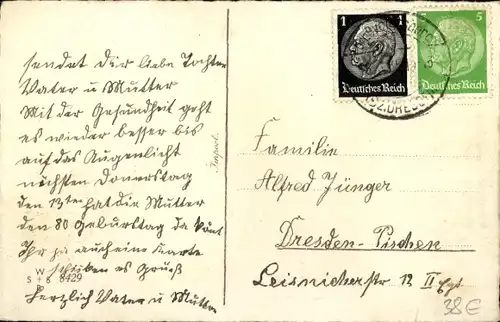 sendet Dir liebe Tochter
Vater u Mutter
Mit der Gesundheit geht
es wieder besser bis
auf das Augenlicht
nächsten Donerstag
den 13ten hat die Mutter
den 80 Geburtstag da könt
Ihr ja auch eine Karte
schreiben es Grüß
Herzlich Vater u Mutter
W
S + S 8429
B
1
Deutsches Reich
5
Deutsches Reich
Familie
Alfred Jünger
Dresden-Pischen
Leisnicherstr 12 II
38€